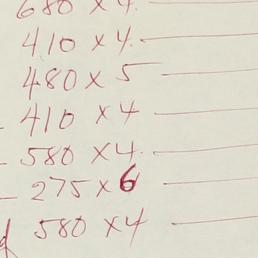 680 x 4.
410 x 4.
480 x 5
410 x 4
580 x 4.
275 x 6
580 x 4